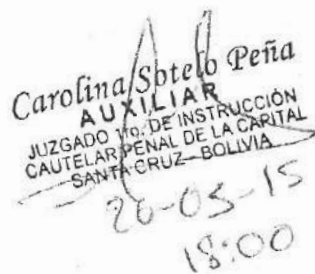 Carolina Sotelo Peña
AUXILIAR
JUZGADO 1ro. DE INSTRUCCIÓN
CAUTELAR PENAL DE LA CAPITAL
SANTA CRUZ - BOLIVIA
20-03-15
18:00